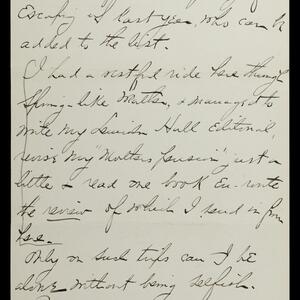 Escaping is last year, who can be
added to the list.
I had a restful ride here through
Spring-like weather, & managed to
write my Hall Editorial,
revise my "Mothers pension" just a
little & read one book en-route
the review of which I send in from
here.
Only on such trips can I be
alone without being selfish.